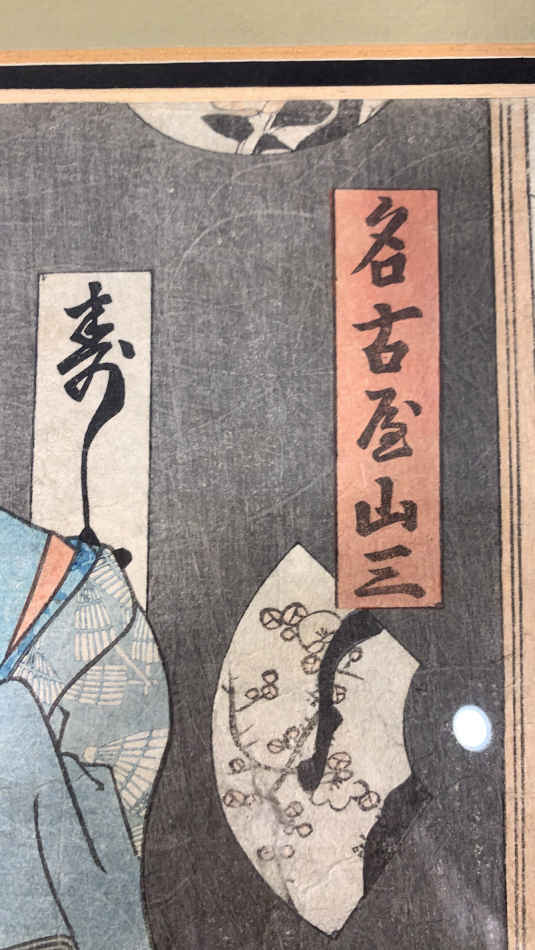 名古屋山三
寿